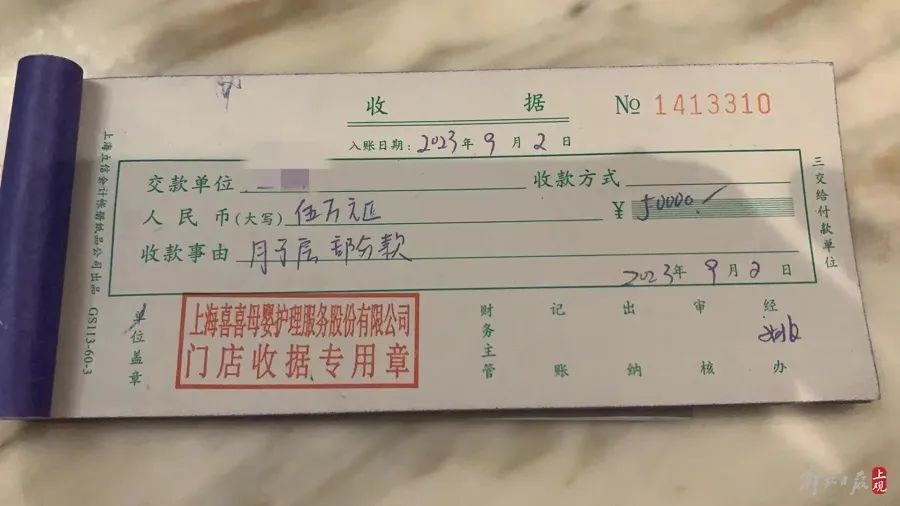 收 据
№ 1413310
入账日期：2023年9月2日
交款单位
收款方式
人民币(大写) 伍万元正
¥ 50000.
收款事由 月子层 部分款
2023年9月2日
三交给付款单位
上海立信会计帐册纸品公司出品 GS113-60-3
单位盖章
上海喜喜母婴护理服务股份有限公司
门店收据专用章
财务主管
记账
出纳
审核
经办
解放日报
上观